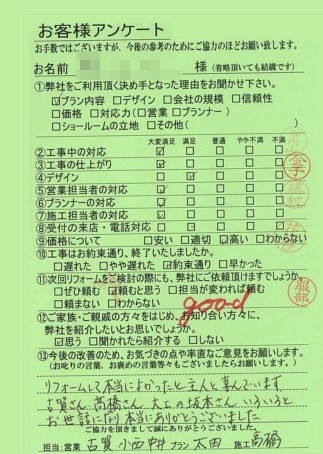 お客様アンケート
お手数ではございますが、今後の参考のためにご協力のほどお願い致します。
お名前 様(省略頂いても結構です)
①弊社をご利用頂く決め手となった理由をお聞かせ下さい。
☑プラン内容 □デザイン □会社の規模 □信頼性
□価格 □対応力(□営業 □プランナー)
□ショールームの立地 □その他( )
大変満足 満足 普通 やや不満 不満
②工事中の対応 ☑ □ □ □ □
③工事の仕上がり ☑ □ □ □ □
④デザイン □ ☑ □ □ □
⑤営業担当者の対応 ☑ □ □ □ □
⑥プランナーの対応 ☑ □ □ □ □
⑦施工担当者の対応 ☑ □ □ □ □
⑧受付の来店・電話対応 □ ☑ □ □ □
⑨価格について □安い □適切 ☑高い □わからない
⑩工事はお約束通り、終了いたしましたか。
□遅れた □やや遅れた ☑約束通り □早かった
⑪次回リフォームをご検討の際にも、弊社にご依頼頂けますでしょうか。
□ぜひ頼む ☑頼むと思う □担当が変われば頼む
□頼まない □わからない
good
⑫ご家族・ご親戚の方々をはじめ、お知り合い方々に、
弊社を紹介したいとお思いでしょうか。
☑思う □聞かれたら紹介する □しない
⑬今後の改善のため、お気づきの点や率直なご意見をお願いします。
(お叱りの言葉、お褒めの言葉等々もございましたらお願いします。)
リフォームして本当によかったと主人と喜んでいます
古賀さん 高橋さん 大工の坂本さん いろいろと
お世話になり本当にありがとうございました
ご協力を頂きまして誠にありがとうございました。
担当:営業 古賀 小西 プラン 太田 施工 高橋
服部